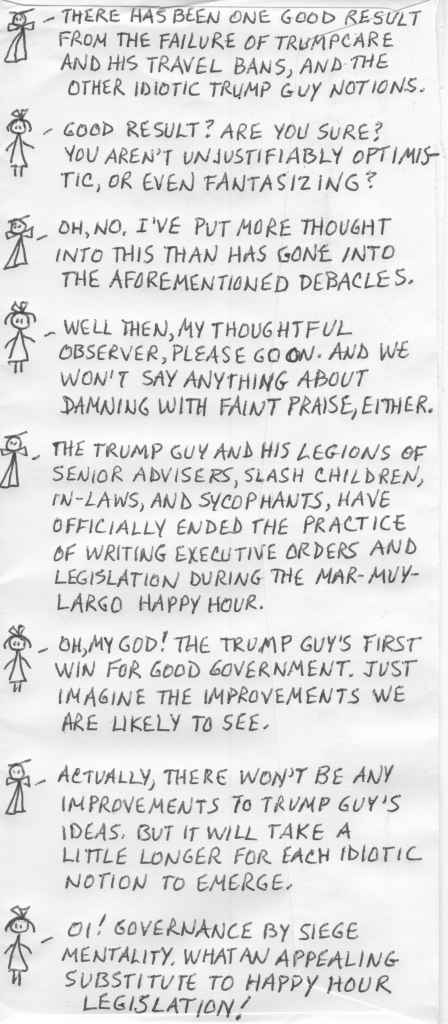 - THERE HAS BEEN ONE GOOD RESULT
FROM THE FAILURE OF TRUMPCARE
AND HIS TRAVEL BANS, AND THE
OTHER IDIOTIC TRUMP GUY NOTIONS.
- GOOD RESULT? ARE YOU SURE?
YOU AREN'T UNJUSTIFIABLY OPTIMIS-
TIC, OR EVEN FANTASIZING?
- OH, NO. I'VE PUT MORE THOUGHT
INTO THIS THAN HAS GONE INTO
THE AFOREMENTIONED DEBACLES.
- WELL THEN, MY THOUGHTFUL
OBSERVER, PLEASE GO ON. AND WE
WON'T SAY ANYTHING ABOUT
DAMNING WITH FAINT PRAISE, EITHER.
- THE TRUMP GUY AND HIS LEGIONS OF
SENIOR ADVISERS, SLASH CHILDREN,
IN-LAWS, AND SYCOPHANTS, HAVE
OFFICIALLY ENDED THE PRACTICE
OF WRITING EXECUTIVE ORDERS AND
LEGISLATION DURING THE MAR-MUY-
LARGO HAPPY HOUR.
- OH, MY GOD! THE TRUMP GUY'S FIRST
WIN FOR GOOD GOVERNMENT. JUST
IMAGINE THE IMPROVEMENTS WE
ARE LIKELY TO SEE.
- ACTUALLY, THERE WON'T BE ANY
IMPROVEMENTS TO TRUMP GUY'S
IDEAS. BUT IT WILL TAKE A
LITTLE LONGER FOR EACH IDIOTIC
NOTION TO EMERGE.
- OI! GOVERNANCE BY SIEGE
MENTALITY. WHAT AN APPEALING
SUBSTITUTE TO HAPPY HOUR
LEGISLATION!